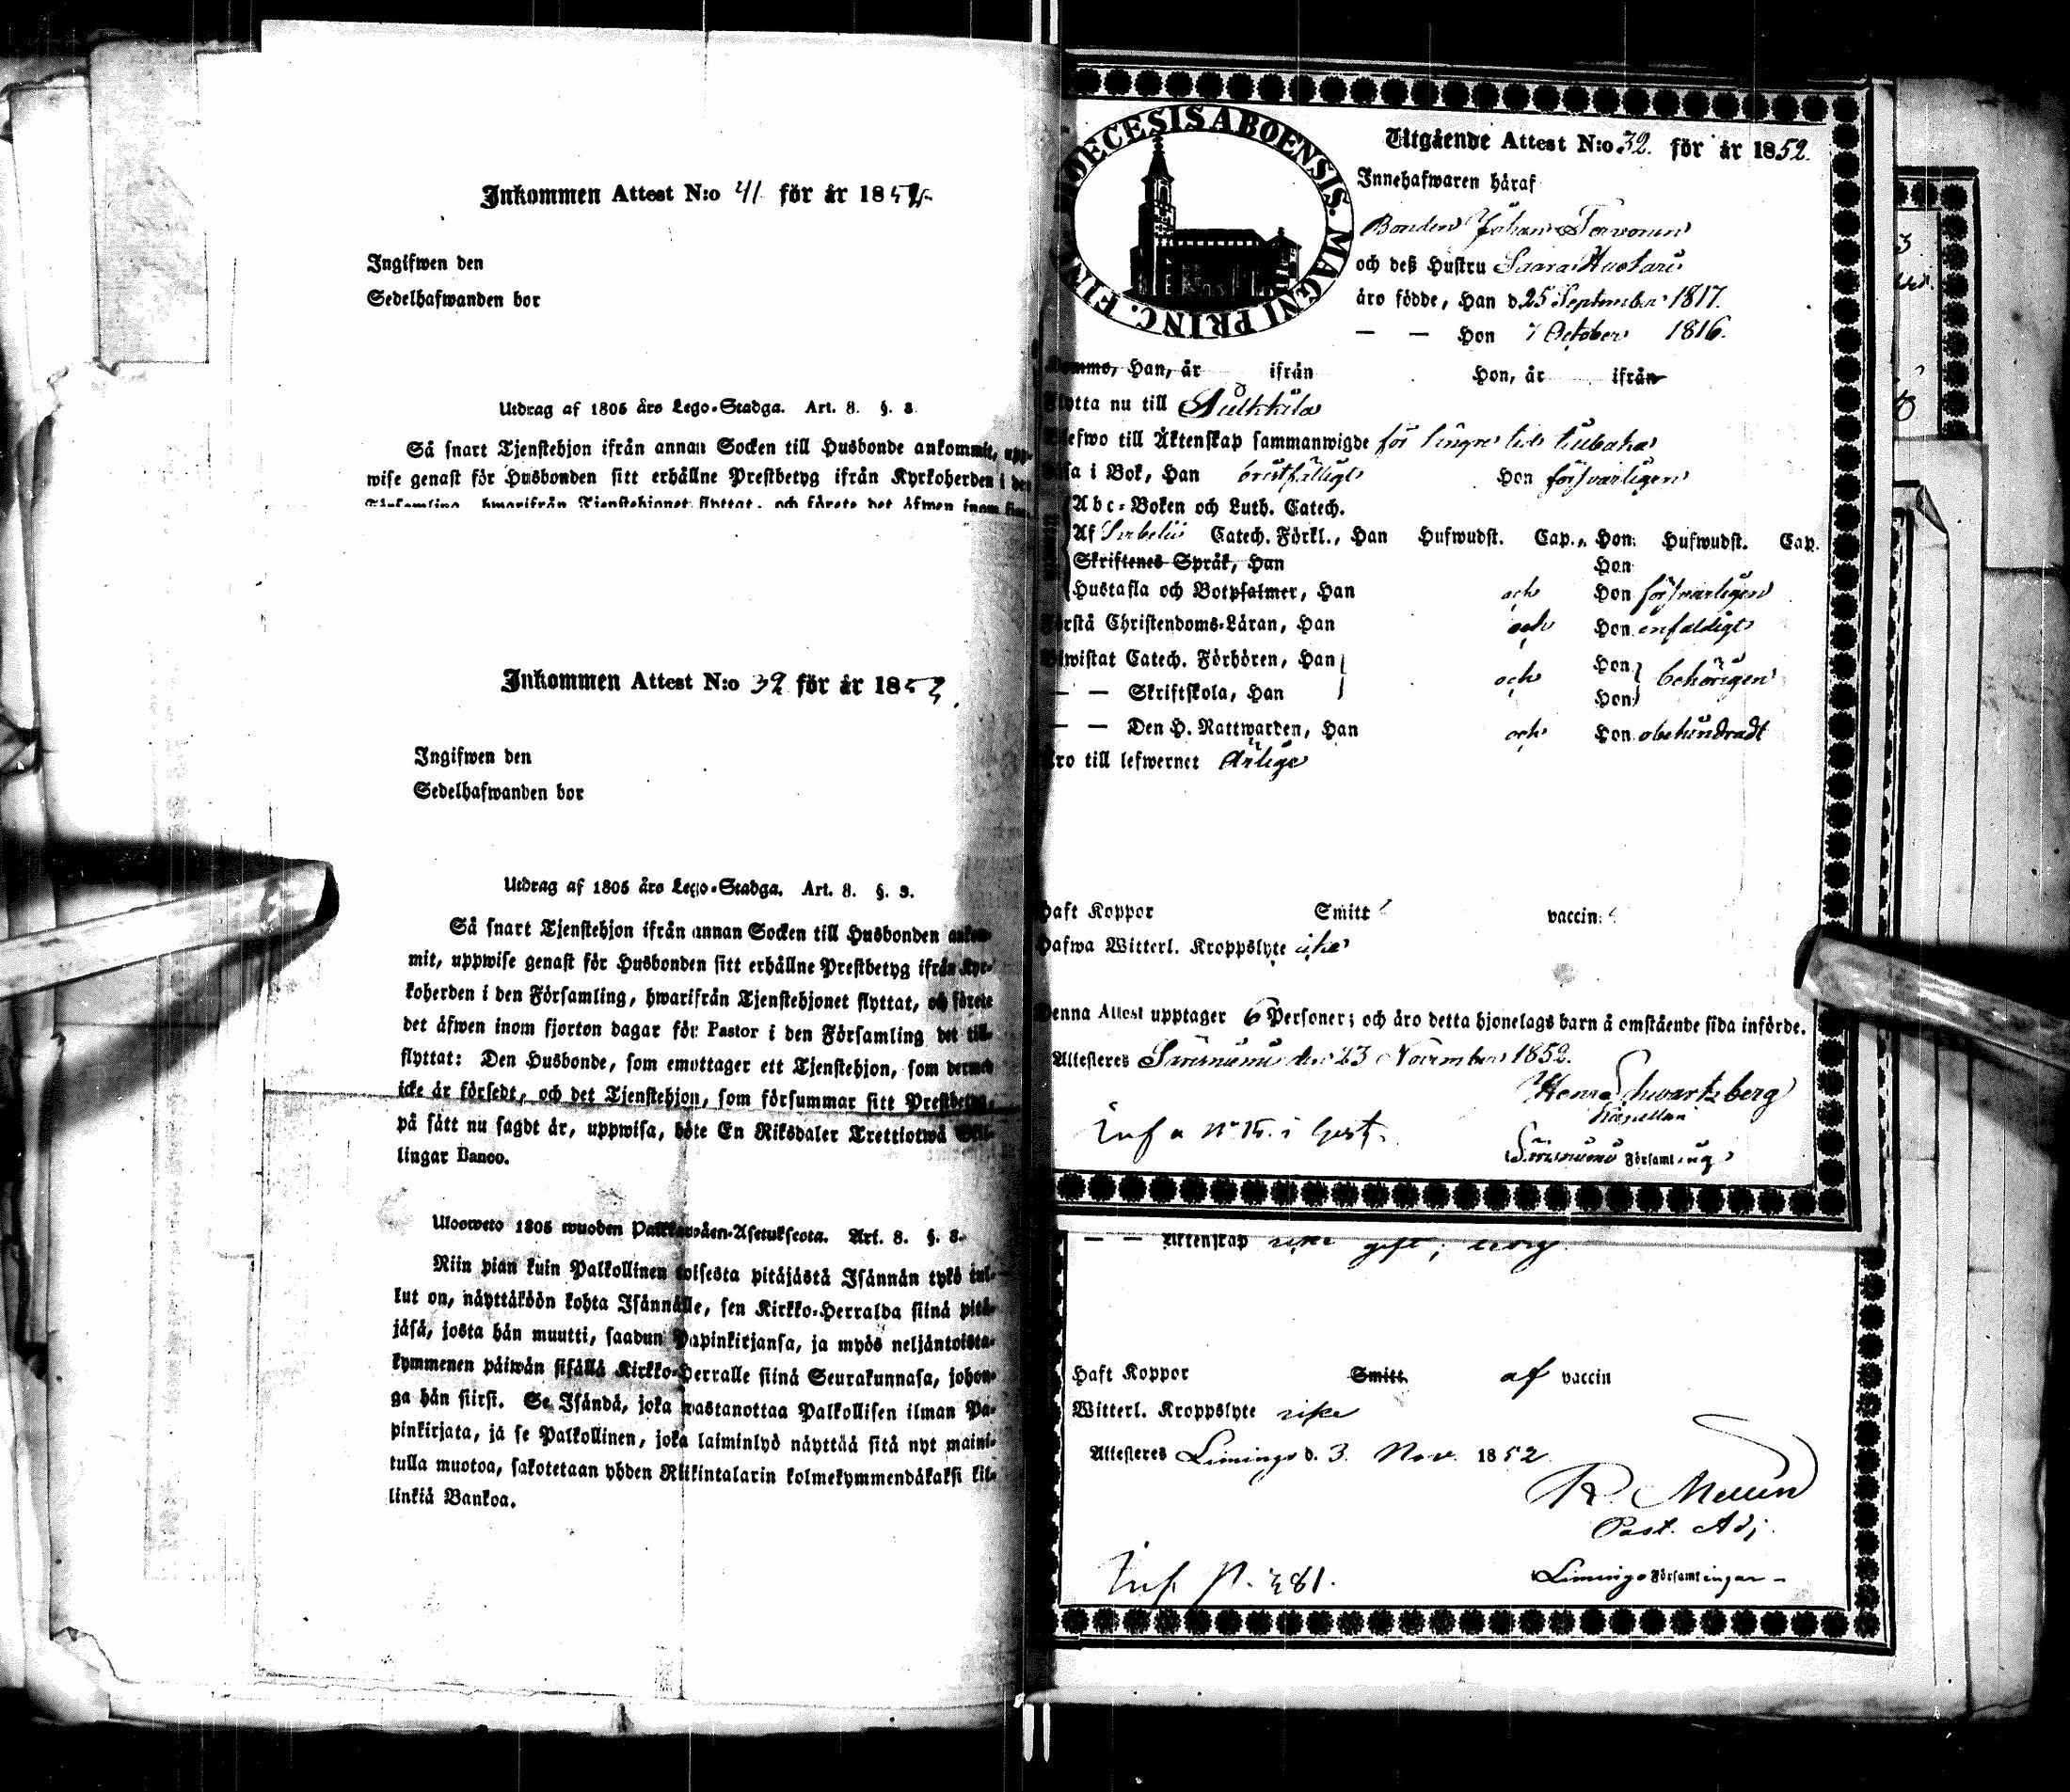 Inkommen Attest N:o 41 för år 185
Ingifwen den
Sedelhafwanden bor
Utdrag af 1805 års Lego-Stadga. Art. 8. §. 3.
Så snart Tjenstehjon ifrån annan Socken till Husbonde ankommit, upp-
wise genast för Husbonden sitt erhållne Prestbetyg ifrån Kyrkoherden i den
Församling, hwarifrån Tjenstehjonet flyttat, och förete det äfwen inom
Inkommen Attest N:o 39 för år 185
Ingifwen den
Sedelhafwanden bor
Utdrag af 1805 års Lego-Stadga. Art. 8. §. 3.
Så snart Tjenstehjon ifrån annan Socken till Husbonden ankom-
mit, uppwise genast för Husbonden sitt erhållne Prestbetyg ifrån Kyr-
koherden i den Församling, hwarifrån Tjenstehjonet flyttat, och förete
det äfwen inom fjorton dagar för Pastor i den Församling det till-
flyttat: Den Husbonde, som emottager ett Tjenstehjon, som dermed
icke är försedt, och det Tjenstehjon, som försummar sitt Prestbetyg,
på sätt nu sagdt är, uppwisa, böte En Riksdaler Trettiotwå Skil-
lingar Banco.
Ulosweto 1805 wuoden Palkkawäen-Asetuksesta. Art. 8. §. 3.
Niin pian kuin Palkollinen toisesta pitäjästä Isännän tykö tul-
lut on, näyttäköön kohta Isännälle, sen Kirkko-Herralda siinä pitä-
jäsä, josta hän muutti, saadun Papinkirjansa, ja myös neljäntoista-
kymmenen päiwän sisällä Kirkko-Herralle siinä Seurakunnasa, johon-
ga hän siirsi. Se Isändä, joka wastanottaa Palkollisen ilman Pa-
pinkirjata, ja se Palkollinen, joka laiminlyö näyttää sitä nyt maini-
tulla muotoa, sakotetaan yhden Riikintalarin kolmekymmendäkaksi kil-
linkiä Bankoa.
DIOECESIS ABOENSIS. MAGNI PRINC. FINL.
Utgående Attest N:o 32. för år 1852.
Innehafwaren häraf
Bonden Johan Tervonen
och deß Hustru Saara Huotari
äro födde, Han d. 25 September 1817.
— — Hon 7 October 1816.
Komme, Han, år ifrån Hon, år ifrån
Flytta nu till Pulkkila
Blefwo till Äktenskap sammanwigde för längre tid tillbaka
Läsa i Bok, Han bristfälligt Hon försvarligen
Abc-Boken och Luth. Catech.
Af Catech. Förkl., Han Hufwudst. Cap., Hon Hufwudst. Cap.
Skriftenes Språk, Han Hon
Hustafla och Botpsalmer, Han och Hon försvarligen
Förstå Christendoms-Läran, Han och Hon enfaldigt
Biwistat Catech. Förhören, Han och Hon behörigen
— — Skriftskola, Han Hon
— — Den H. Nattwarden, Han och Hon obehindradt
Äro till lefwernet ärlige
Haft Koppor Smitt vaccin.
Hafwa Witterl. Kroppslyte icke
Denna Attest upptager 6 Personer; och äro detta hjonelags barn å omstående sida införde.
Attesteras den 23 November 1852.
Schwartzberg
Kapellan
Församling
— — Äktenskap icke gift; ledig
Haft Koppor Smitt af vaccin
Witterl. Kroppslyte icke
Attesteras Limingo d. 3. Nov. 1852
Past. Adj.
Inf. p. 381.
Limingo Församlingar